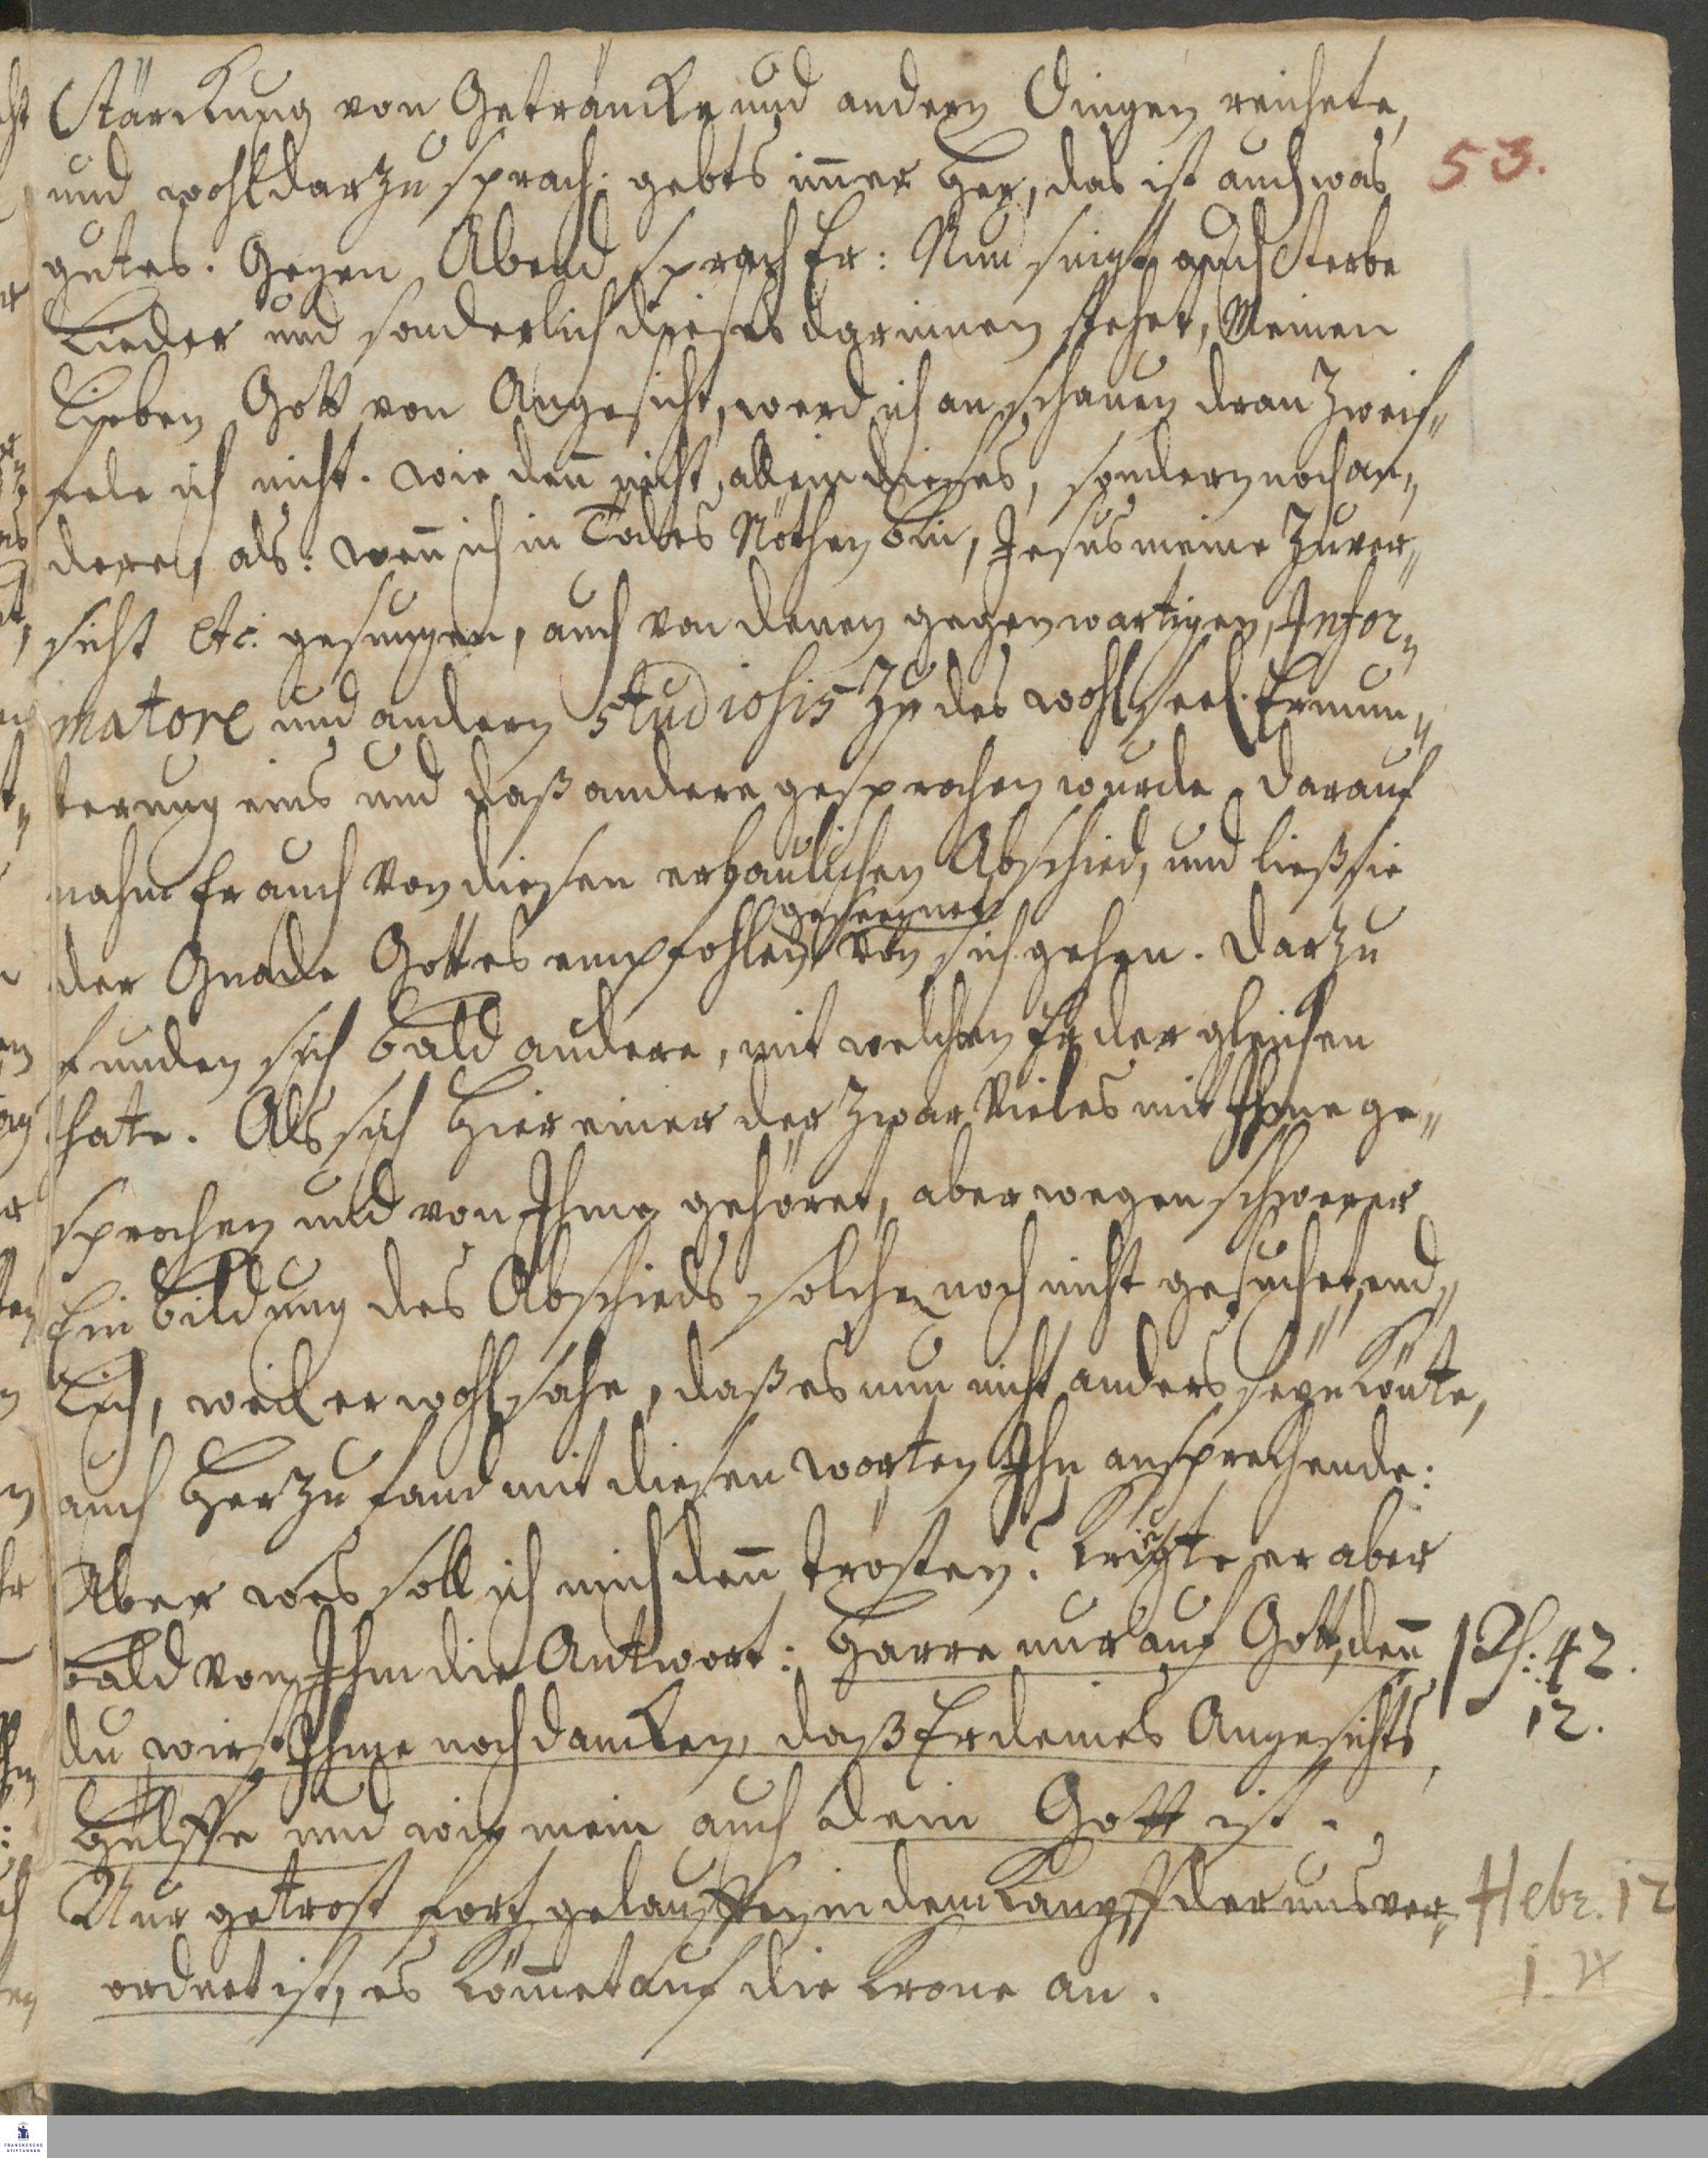 Stärckung von Getrancke und andern Dingen reichete,
und wohl darzu sprach: gebts im̄er her, das ist auch was
53.
gutes. Gegen Abend sprach Er: Nun singt auch Sterbe
Lieder und sonderlich dieses darinnen stehet, Meinen
Lieben Gott von Angesicht, werd ich anschauen dran zweif„
fele ich nicht. wie den̄ nicht allein dieses, sondern noch an„
dere, als: wen̄ ich in Todes Nöthen bin, Jesus meine Zuver„
sicht etc. gesungen, auch von denen gegenwartigen, Infor„
matore und andern Studiosis zu des wohlseel. Ermun„
terung eins und daß andere gesprochen wurde. Darauf
nahm Er auch von diesen erbaulichen Abschied, und ließ sie
geseegnet
der Gnade Gottes empfohlen von sich gehen. Darzu
funden sich bald andere, mit welchen Er der gleichen
thate. Als sich hier einer der zwar Vieles mit Ihme ge„
sprochen und von Ihme gehöret, aber wegen schwerer
Einbildung des Abschieds solchen noch nicht gesuchet, end„
lich, weil er wohl sahe, daß es nun nicht anders seyn kön̄te,
auch herzu fand mit diesen worten Ihn ansprechende:
Aber wes soll ich mich den̄ trösten? kriegte er aber
bald von Ihm die Antwort: Harre nur auf Gott, den̄
Ps: 42.
du wirst Ihme noch dancken, daß Er deines Angesichts
12.
Hülffe und wie mein auch dein Gott ist.
Nur getrost fort gelauffen in dem Kampff der uns ver„
Hebr. 12
ordnet ist, es kom̄et auf die Krone an.
1.